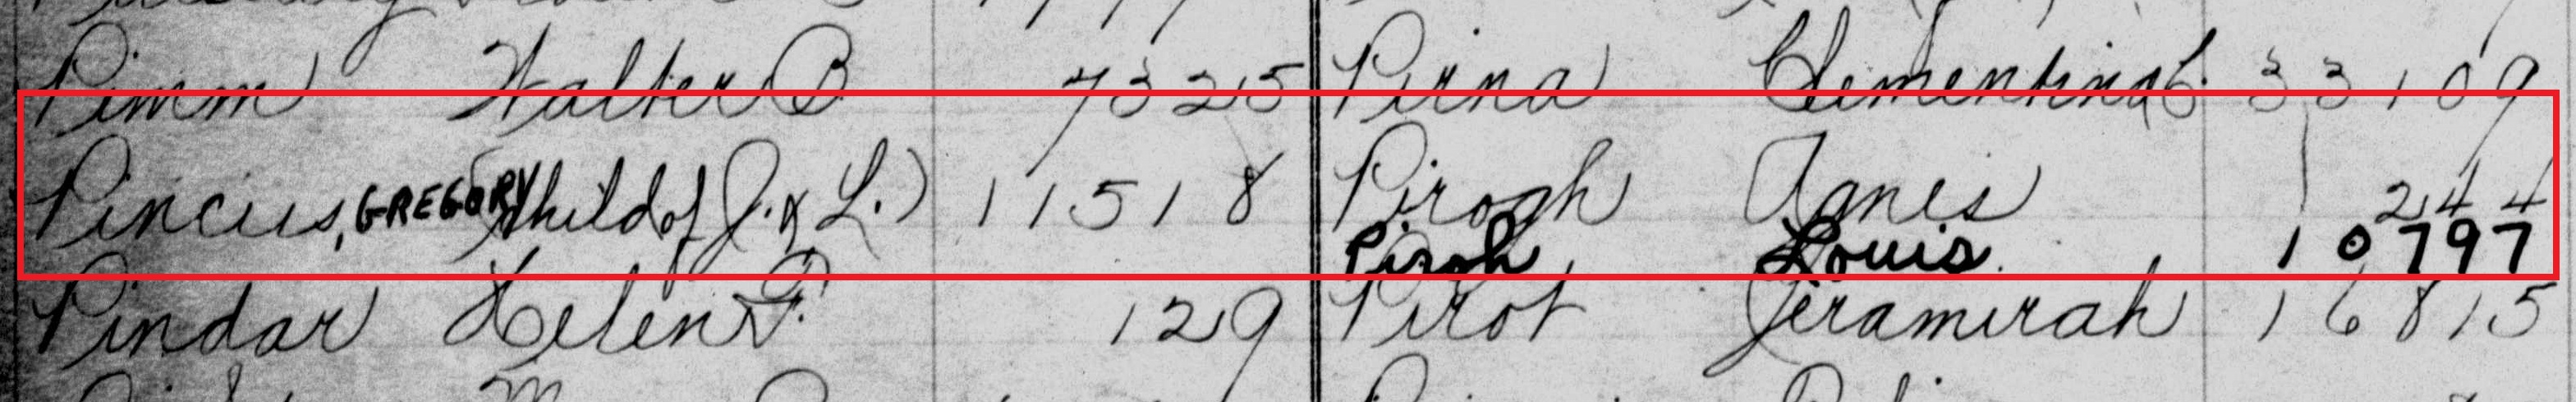 Pimm Walter B 7325 Pirna Clementina C. 33109
Pincus, GREGORY (Child of J. & L.) 11518 Pirogh Agnes 244
Piroh Louis 10797
Pindar Helen F. 129 Pirot Jeramirah 16815